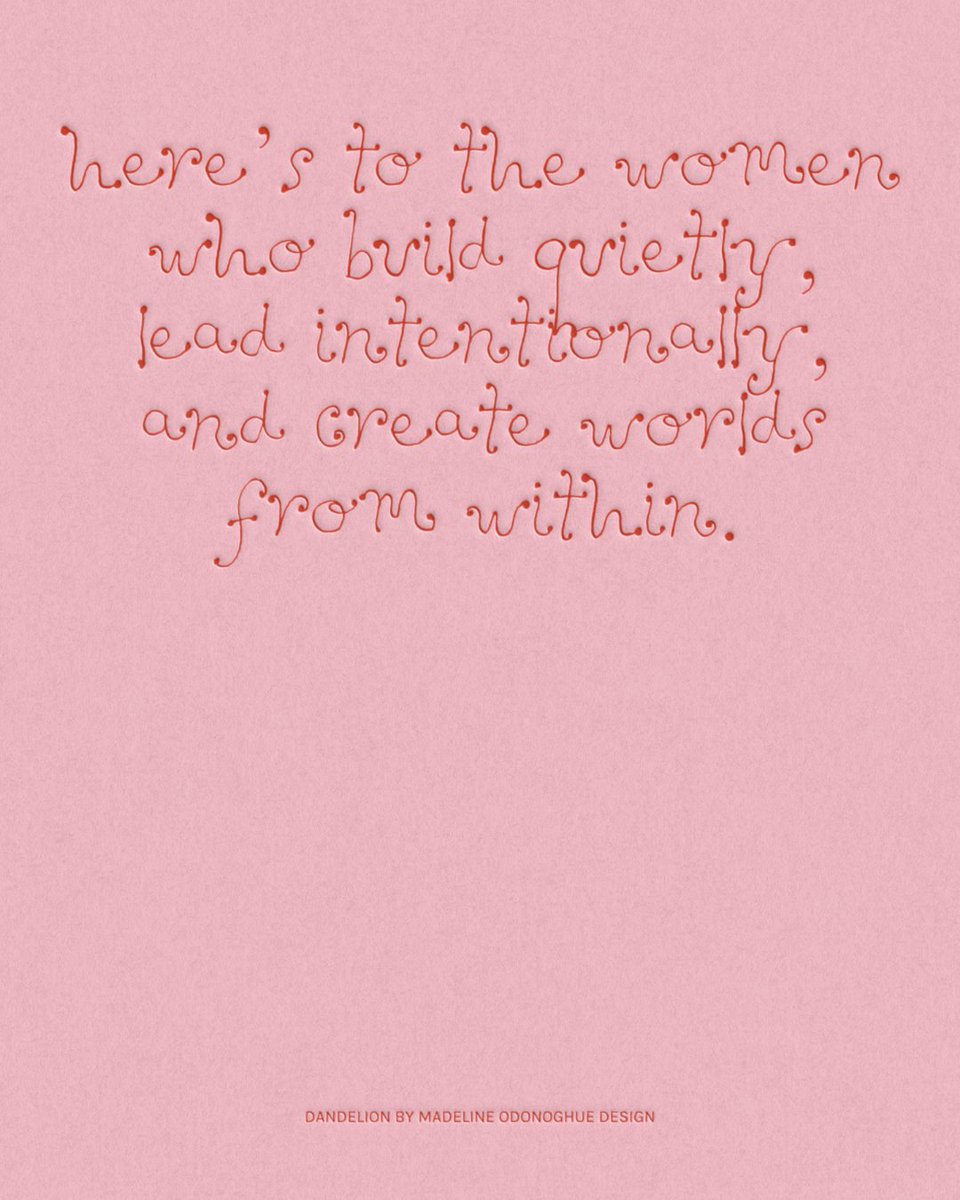 here's to the women
who build quietly,
lead intentionally,
and create worlds
from within.
DANDELION BY MADELINE ODONOGHUE DESIGN